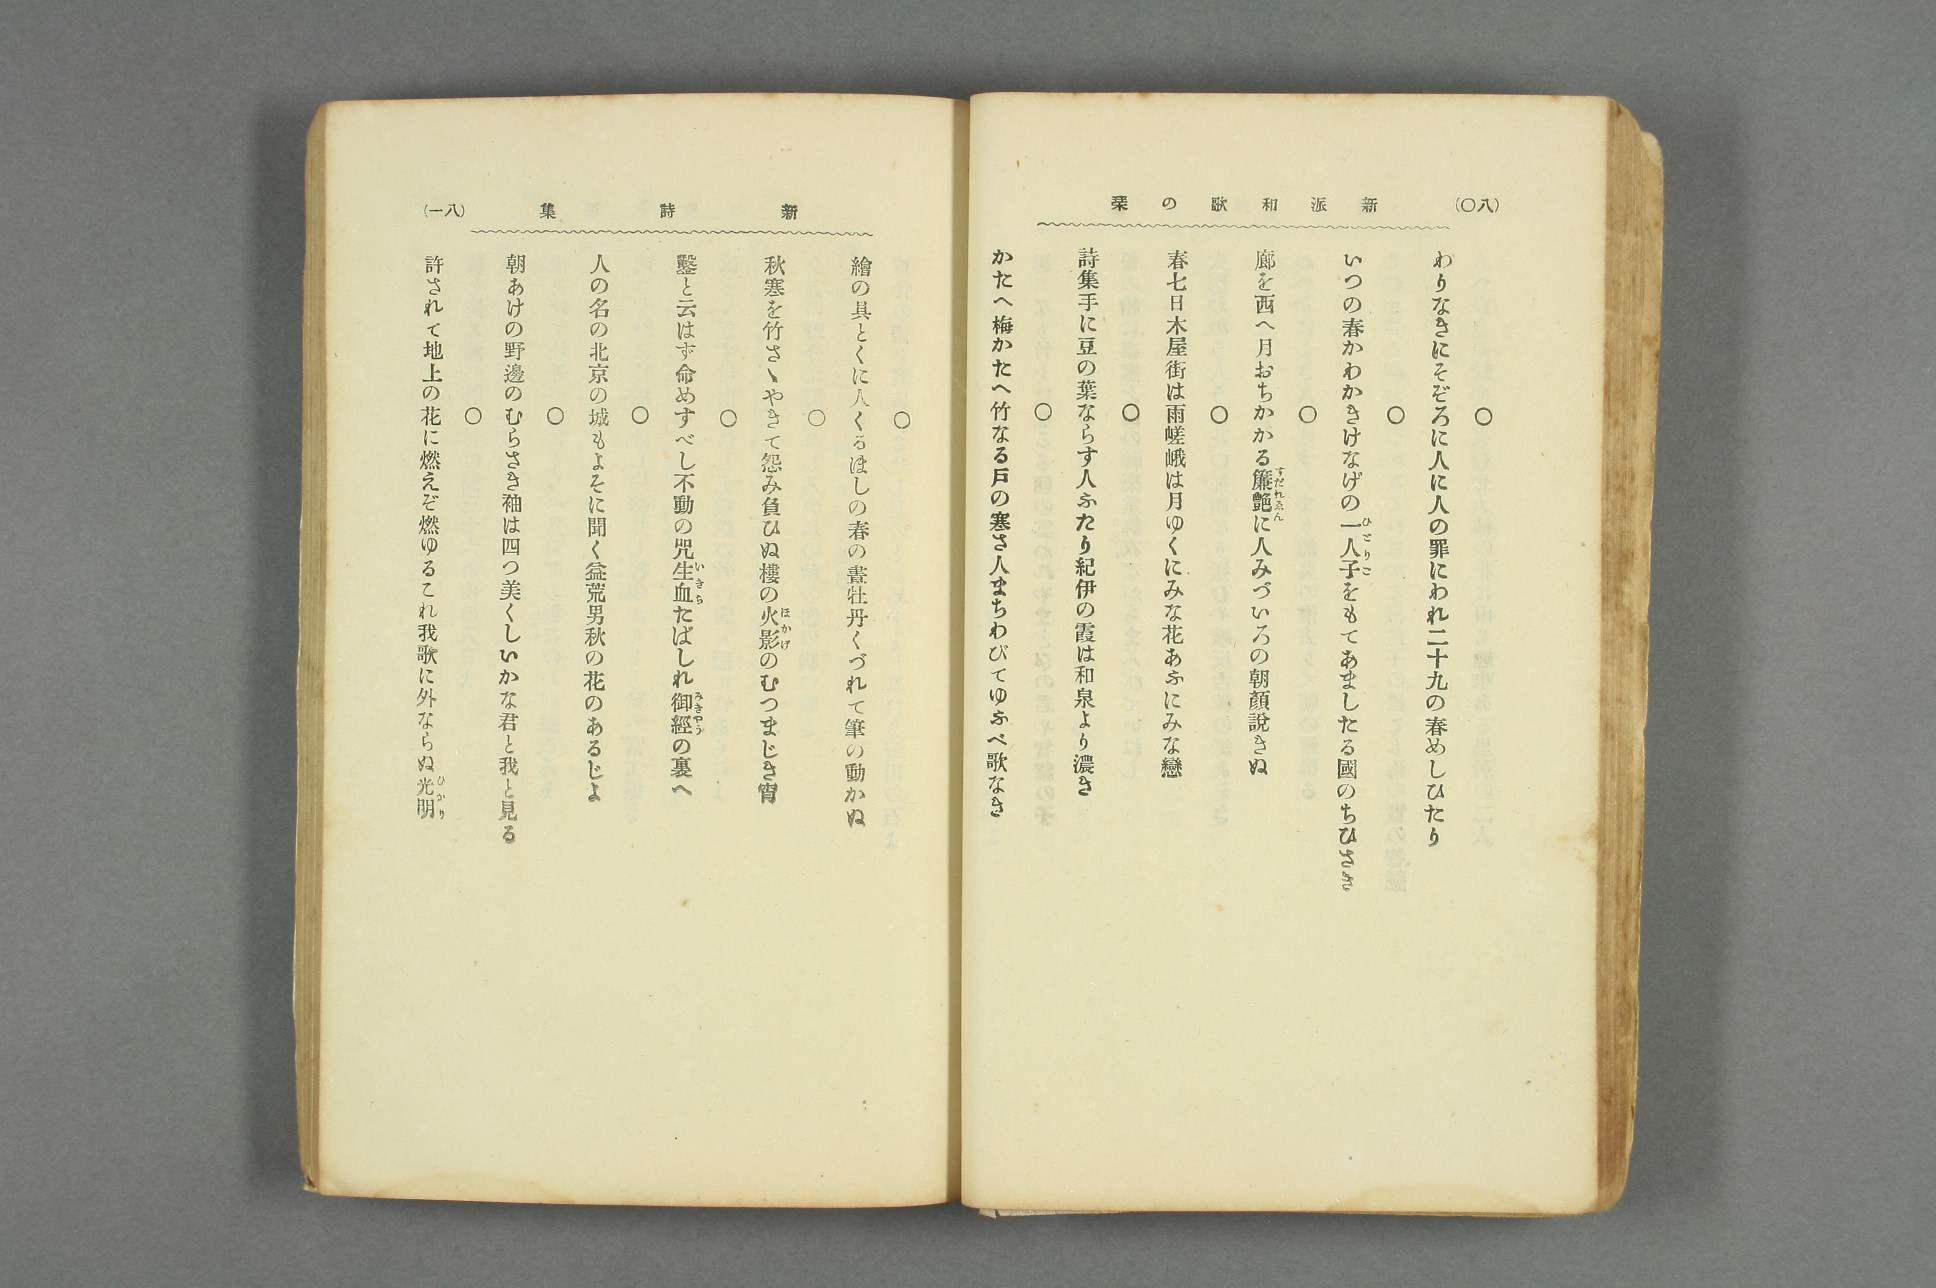 新派和歌の栞
(八〇)
○
わりなきにそぞろに人に人の罪にわれ二十九の春めしひたり
○
いつの春かわかきけなげの一人子をもてあましたる國のちひさき
ひとりご
○
廊を西へ月おちかかる簾艶に人みづいろの朝顏說きぬ
すだれゑん
○
春七日木屋街は雨嵯峨は月ゆくにみな花あふにみな戀
○
詩集手に豆の葉ならす人ふたり紀伊の霞は和泉より濃き
○
かたへ梅かたへ竹なる戸の寒さ人まちわびてゆふべ歌なき
新詩集
(八一)
○
繪の具とくに人くるほしの春の晝牡丹くづれて筆の動かぬ
○
秋寒を竹さゝやきて怨み負ひぬ樓の火影のむつまじき宵
ほかげ
○
鑿と云はず命めすべし不動の咒生血たばしれ御經の裏へ
いきち
みきやう
○
人の名の北京の城もよそに聞く益荒男秋の花のあるじよ
○
朝あけの野邊のむらさき袖は四つ美くしいかな君と我と見る
○
許されて地上の花に燃えぞ燃ゆるこれ我歌に外ならぬ光明
ひかり